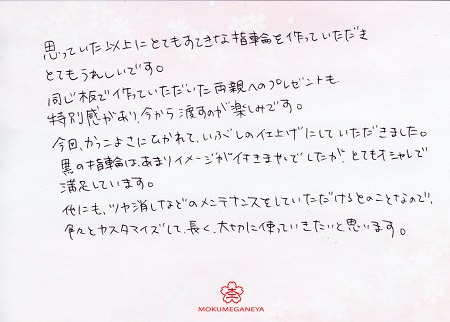 思っていた以上にとてもすてきな指輪を作っていただき
とてもうれしいです。
同じ板で作っていただいた両親へのプレゼントも
特別感があり、今から渡すのが楽しみです。
今回、かっこよさにひかれて、いぶしの仕上げにしていただきました。
黒の指輪は、あまりイメージが付きませんでしたが、とてもオシャレで
満足しています。
他にも、ツヤ消しなどのメンテナンスをしていただけるとのことなので、
色々とカスタマイズして、長く、大切に使っていきたいと思います。
MOKUMEGANEYA